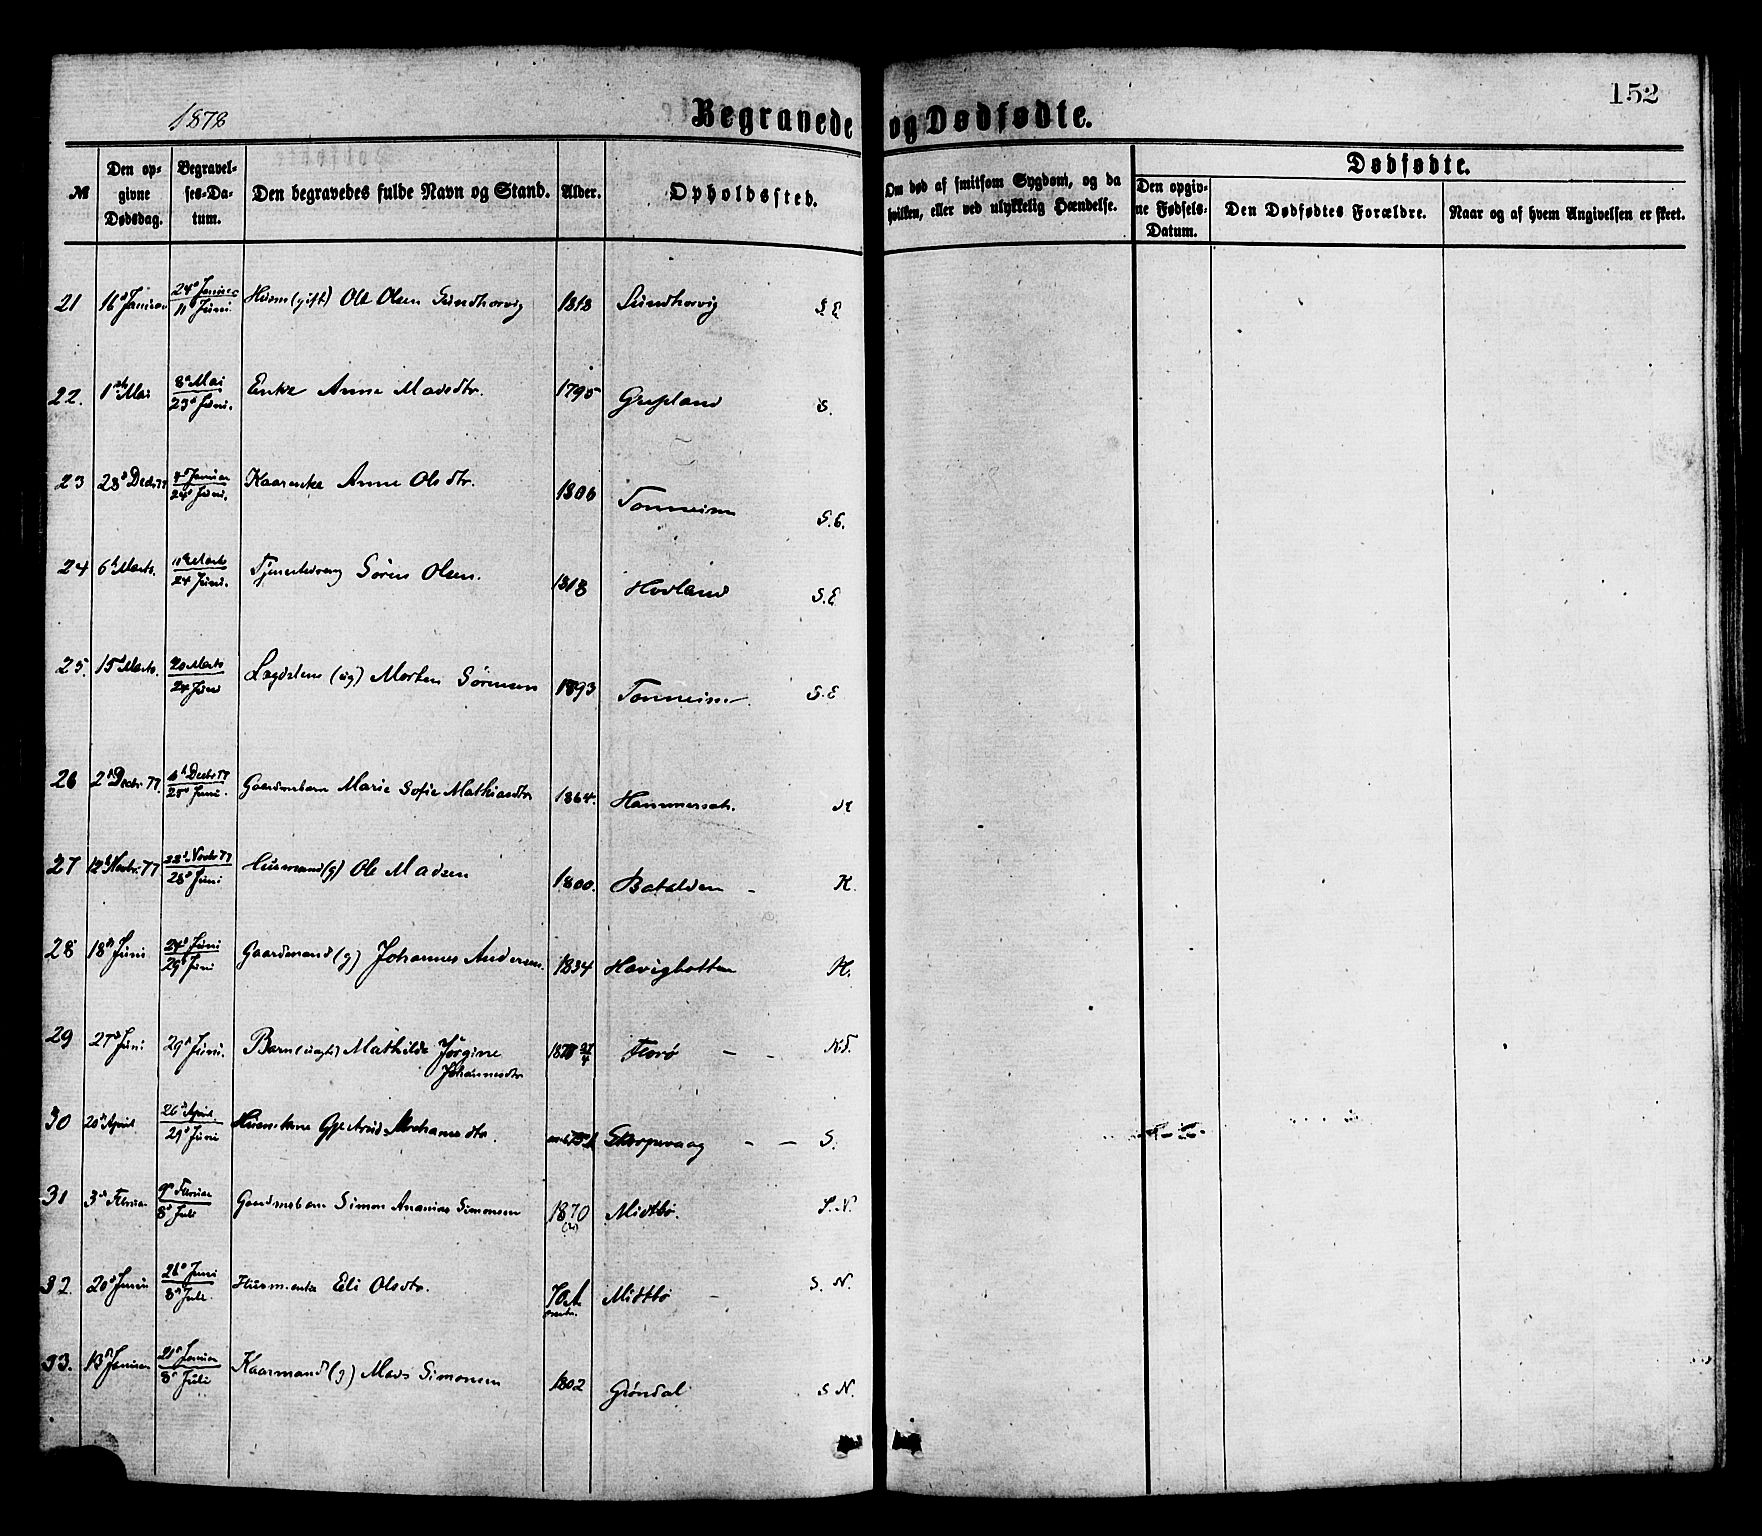 152
1878
Begravede og Dødfødte.
№
Den opgivne Dødsdag.
Begravelses-Datum.
Den begravedes fulde Navn og Stand.
Alder.
Opholdssted.
Om død af smitsom Sygdom, og da hvilken, eller ved ulykkelig Hændelse.
Dødfødte.
Den opgivne Fødsels-Datum.
Den Dødfødtes Forældre.
Naar og af hvem Angivelsen er skeet.
21 16d Januar 24d Januar 11 Juni Huusm (gift) Ole Olsen Sundhorvig 1818 Sundhorvig S E
22. 1ste Mai 8d Mai 23d Juni. Enke Anne Madsdtr. 1795 Grepland S.
23 28d Decbr 77 4d Januar 24d Juni. Kaarenke Anne Olsdtr. 1806 Tonneim S.E.
24 6d Marts. 11d Marts 24 Juni. Tjenestedreng Sören Olsen. 1818 Hovland S.E
25. 15d Marts. 20 Marts 24 Juni Lægdslem (ug) Morten Sörensen 1893 Tonneim S.E
26 2d Decbr 77. Decbr 77 28d Juni. Gaardmsbarn Marie Sofie Mathiasdtr 1864. Hammersæt.
27 12d Novbr. 77 22d Novbr 77 28d Juni Huusmand (g) Ole Madsen 1800. Batalden - K.
28 18d Juni 24d Juni 29d Juni Gaardmand (g) Johannes Andersen. 1834 Hovigbotten K.
29 27d Juni 29d Juni. Barn (uægte) Mathilde Jörgine Johannesdtr 187 Florö - - Kd.
30 20d April 26d April. 29d Juni Huuskone 75 A Skorpevaag - - S.
31 3d Februar 9d Februar 8d Juli Gaardmsbarn Simon Ananias Simonsen 1870 Midtbö. S.N.
32. 20d Juni 26d Juni 8d Juli. Huusm.enke Eli Olsdtr. 70 A Midtbö - S. N.
33. 13d Januar 21d Januar 8d Juli Kaarmand (g) Mads Simonsen 1802 Gröndal S N.